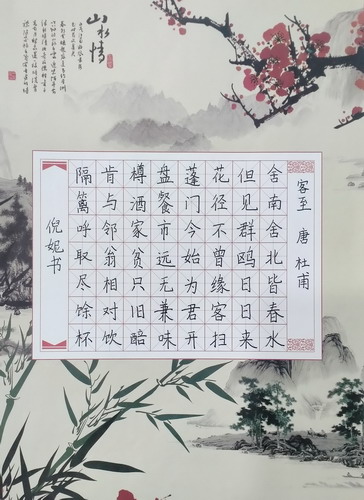 山水情
客至 唐 杜甫
舍南舍北皆春水
但见群鸥日日来
花径不曾缘客扫
蓬门今始为君开
盘餐市远无兼味
樽酒家贫只旧醅
肯与邻翁相对饮
隔篱呼取尽馀杯
倪妮书